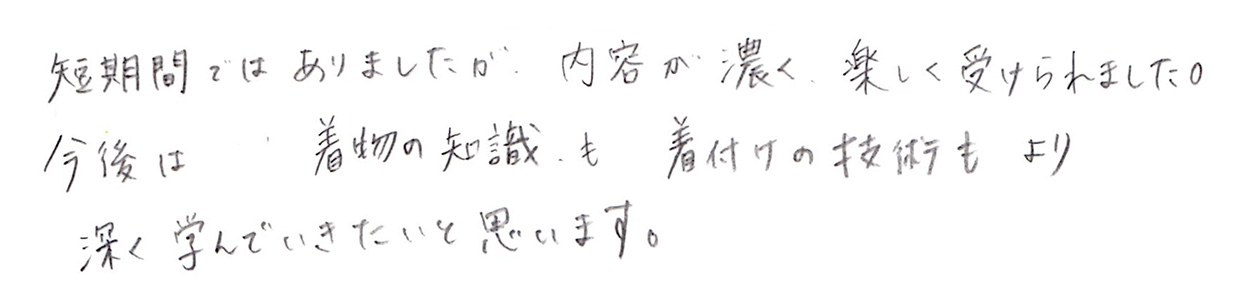 短期間ではありましたが、内容が濃く、楽しく受けられました。
今後は 着物の知識も 着付けの技術も より
深く学んでいきたいと思います。